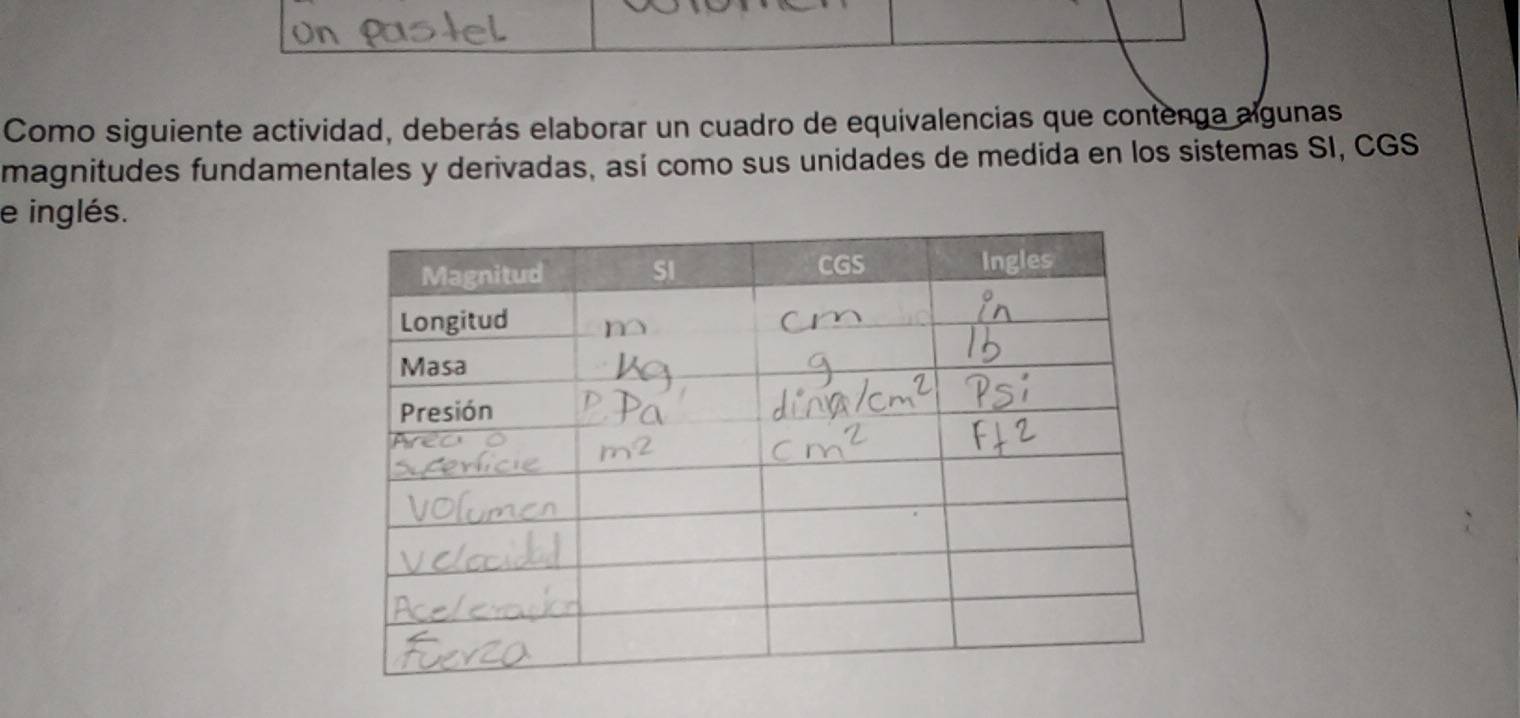 un pastel
Como siguiente actividad, deberás elaborar un cuadro de equivalencias que contenga algunas
magnitudes fundamentales y derivadas, así como sus unidades de medida en los sistemas SI, CGS
e inglés.
Magnitud SI CGS Ingles
Longitud m cm in
Masa kg g lb
Presión P Pa dina/cm² Psi
Area o superficie m² cm² Ft2
Volumen
Velocidad
Aceleración
Fuerza